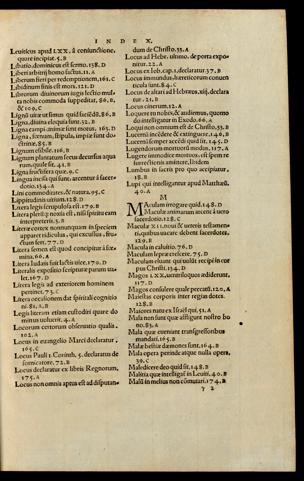 INDEX.
Leuiticus apud LXX. à coniunctione,
quare incipiat. 5. B
Libatio, dominicus est sermo. 138. D
Liberi arbitrij homo factus. 21. A
Liberum fieri per redemptionem, 161. C
Libidinum finis est mors. 121. D
Librorum diuinorum iugis lectio mul-
ta nobis commoda suppeditat, 86. B,
& 109. C
Lignū uitæ utimur quid sit. 86. B
Ligna, diuina eloquia sunt. 32. B
Ligna campi animæ sunt motus. 163. D
Ligna, fœnum, stipula, impiæ sunt do-
ctrinæ. 85. B
Lignum esse. 116. B
Lignum plantatum secus decursus aqua
rum, quale sit. 41. B
Lingua inuersa quæ. 9. C
Lingua incisa qui sunt, arcentur à sacer-
dotio. 154. A
Lini commoditates, & natura. 95. C
Lippitudinis uitium. 128. D
Litera legis semipsola est. 179. B
Litera plerūq; noxia est, nisi spiritu eam
interpreteris. 3. B
Literæ cortex nonnunquam in speciem
apparet ridiculus, qui excussus, fru-
ctum fert. 77. D
Litera semen est quod concipitur à fœ-
mina. 66. A
Litera Iudaïs fuit lactis uice. 170. D
Literalis expositio scripturæ parum ua-
let. 167. D
Litera legis ad exteriorem hominem
pertinet. 73. C
Litera occasionem dat spiritali cognitio
ni. 81. B
Legis literam etiam custodiri quare do
minus uoluerit. 4. D
Locorum certorum obseruatio qualis.
102. A
Locus in euangelio Marci declaratur.
165. C
Locus Pauli 1. Corinth. 5. declaratus de
fornicatore. 72. B
Locus declaratur ex libris Regnorum,
175. A
Locus non omnis aptus est ad disputan-
dum de Christo. 33. A
Locus ad Hebr. ultimo, de porta expo-
nitur. 22. A
Locus ex Ieb, cap. 1. declaratur. 37. B
Locus immundus, hæreticorum conuen
ticula sunt. 84. C
Locus de altari ad Hebræos, xiij. declara
tur. 21. B
Locus cinerum. 12. A
Loquere tu nobis, & audiemus, quomo
do intelligitur in Exodo. 66. A
Loqui non omnium est de Christo. 33. B
Lucerna incēdere & extinguere. 146. B
Lucerna semper accēdi quid sit. 145. D
Lugendorum mortuorū modus. 117. A
Lugere immodice mortuos, est spem re
surrectionis amittere. Ibidem
Lumbus in sacris pro quo accipitur.
18. B
Lupi qui intelliguntur apud Matthæū.
40. A
M
Maculam irrogare quid. 148. D
Maculæ animarum arcent à uero
sacerdotio. 128. C
Maculæ XII. noui & ueteris testamen-
ti, quibus uacare debent sacerdotes,
129. B
Macula in caluitio. 76. D
Maculam lepræ excelere. 75. D
Maculam eluant qui uolūt recipi in cor
pus Christi. 134. D
Magos LXX. uentriloquos ædiderunt,
117. D
Magos consulere quale peccatū. 120. A
Maiestas corporis inter regias dotes.
128. B
Maiores natu ex Israel qui. 51. A
Mala non sunt quæ affligunt nostro bo
no. 83. A
Mala quæ eueniunt transgressoribus
mandati. 165. B
Malæ bestiæ dæmones sunt. 164. B
Mala opera perinde atque nulla opera,
39. C
Maledicere deo quid sit. 148. B
Malitia quæ intelligit in Leuiti. 40. B
Malū in melius non cōmutari. 174. B
γ 2